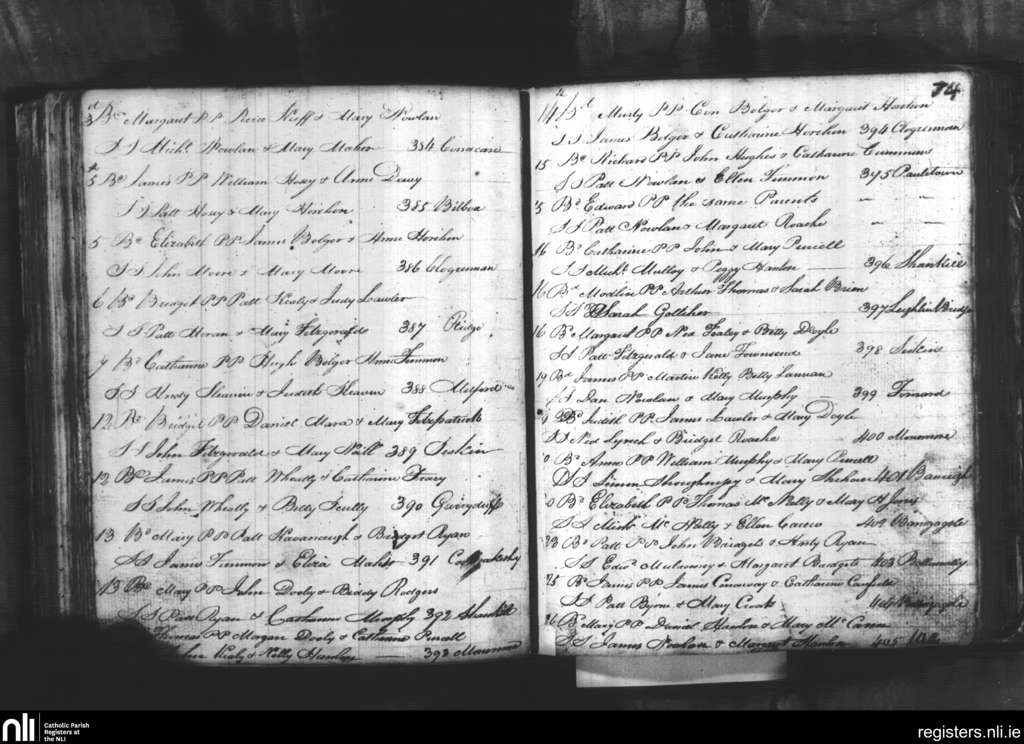 3d Bd Margaret PP Pierce Neff & Mary Nowlan
SS Michl Nowlan & Mary Maher 384
5 Bd James PP William Hosey & Anne
SS Patt Hosey & Mary Horohen 385 Bilboa
5 Bd Elizabeth PP James Bolger & Anne Horohen
SS John Moore & Mary Moore 386 Clogrennan
6 Bd Bridget PP Patt Kealy & Judy Lawler
SS Patt Moran & Mary Fitzgerald 387 Ridge
7 Bd Catharine PP Hugh Bolger Anne Timmon
SS Andy Sleavin & Judith Sleavin 388 Milford
12 Bd Bridget PP Daniel Mara & Mary Fitzpatrick
SS John Fitzgerald & Mary Neill 389 Seskin
13 Bd James PP Patt Wheatly & Catharine
SS John Wheatly & Betty Scully 390
13 Bd Mary PP Patt Kavanaugh & Bridget Ryan
SS James Timmon & Eliza Maher 391
13 Bd Mary PP John Dooly & Biddy Rodgers
SS Patt Ryan & Catharine Murphy 392 Shankill
Thomas PP Magan Dooly & Catharine Powell
Kealy & Kelly 393
74
14 Bd Murty PP Con Bolger & Margaret
SS James Bolger & Catharine Horohen 394 Clogrennan
15 Bd Richard PP John Hughes & Catharine Cummins
SS Patt Nowlan & Ellen Timmon 395 Paulstown
15 Bd Edward PP the same Parents
SS Patt Nowlan & Margaret Roache
16 Bd Catharine PP John & Mary Purcell
SS Michl Mulloy & Peggy Hanlon 396 Shankill
16 Bd Modlin PP Arthur Thomas & Sarah Brien
SS Sarah Golleher 397 Leighlin Bridge
16 Bd Margaret PP Ned Fealey & Betty Doyle
SS Patt Fitzgerald & Jane Townsend 398 Seskin
19 Bd James PP Martin Kelly Betty Lannan
SS Dan Nowlan & Mary Murphy 399
Bd Judith PP James Lawler & Mary Doyle
SS Ned Lynch & Bridget Roache 400
Bd Anne PP William Murphy & Mary Purcell
SS Simon & Mary 401
Bd Elizabeth PP Thomas Mc Nally & Mary
SS Michl Mc Nally & Ellen 402
23 Bd Patt PP John Bridgets & Ryan
SS Edwd Mulowney & Margaret Bridgets 403
25 Bd James PP James Conoway & Catharine
SS Patt Byrne & Mary 404
26 Bd Mary PP Daniel & Mary
SS James & Margaret 405
nli
Catholic Parish
Registers at
the NLI
registers.nli.ie